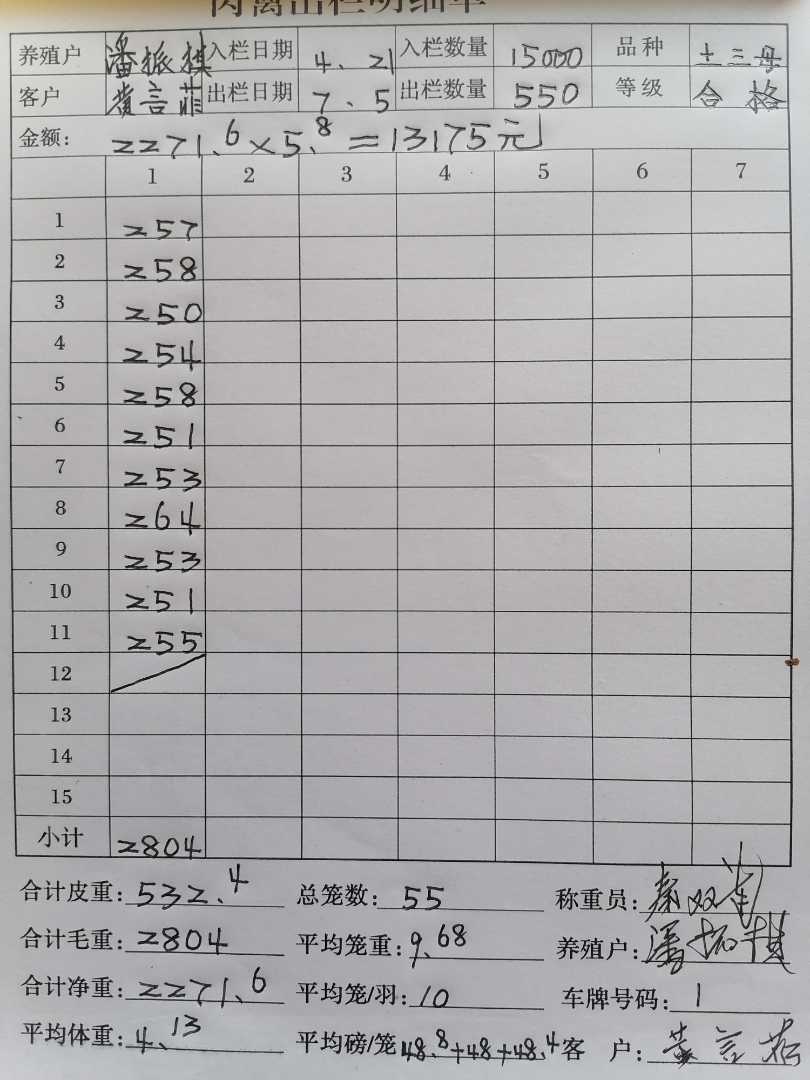 肉禽出栏明细单
养殖户 潘振棋 入栏日期 4、21 入栏数量 15000 品种 土三母
客户 黄言菲 出栏日期 7、5 出栏数量 550 等级 合格
金额: 2271.6×5.8=13175元
1 2 3 4 5 6 7
1 257
2 258
3 250
4 254
5 258
6 251
7 253
8 264
9 253
10 251
11 255
12
13
14
15
小计 2804
合计皮重: 532.4 总笼数: 55 称重员: 秦双
合计毛重: 2804 平均笼重: 9.68 养殖户: 潘振棋
合计净重: 2271.6 平均笼/羽: 10 车牌号码: 1
平均体重: 4.13 平均磅/笼 48.8+48+48.4 客户: 黄言菲